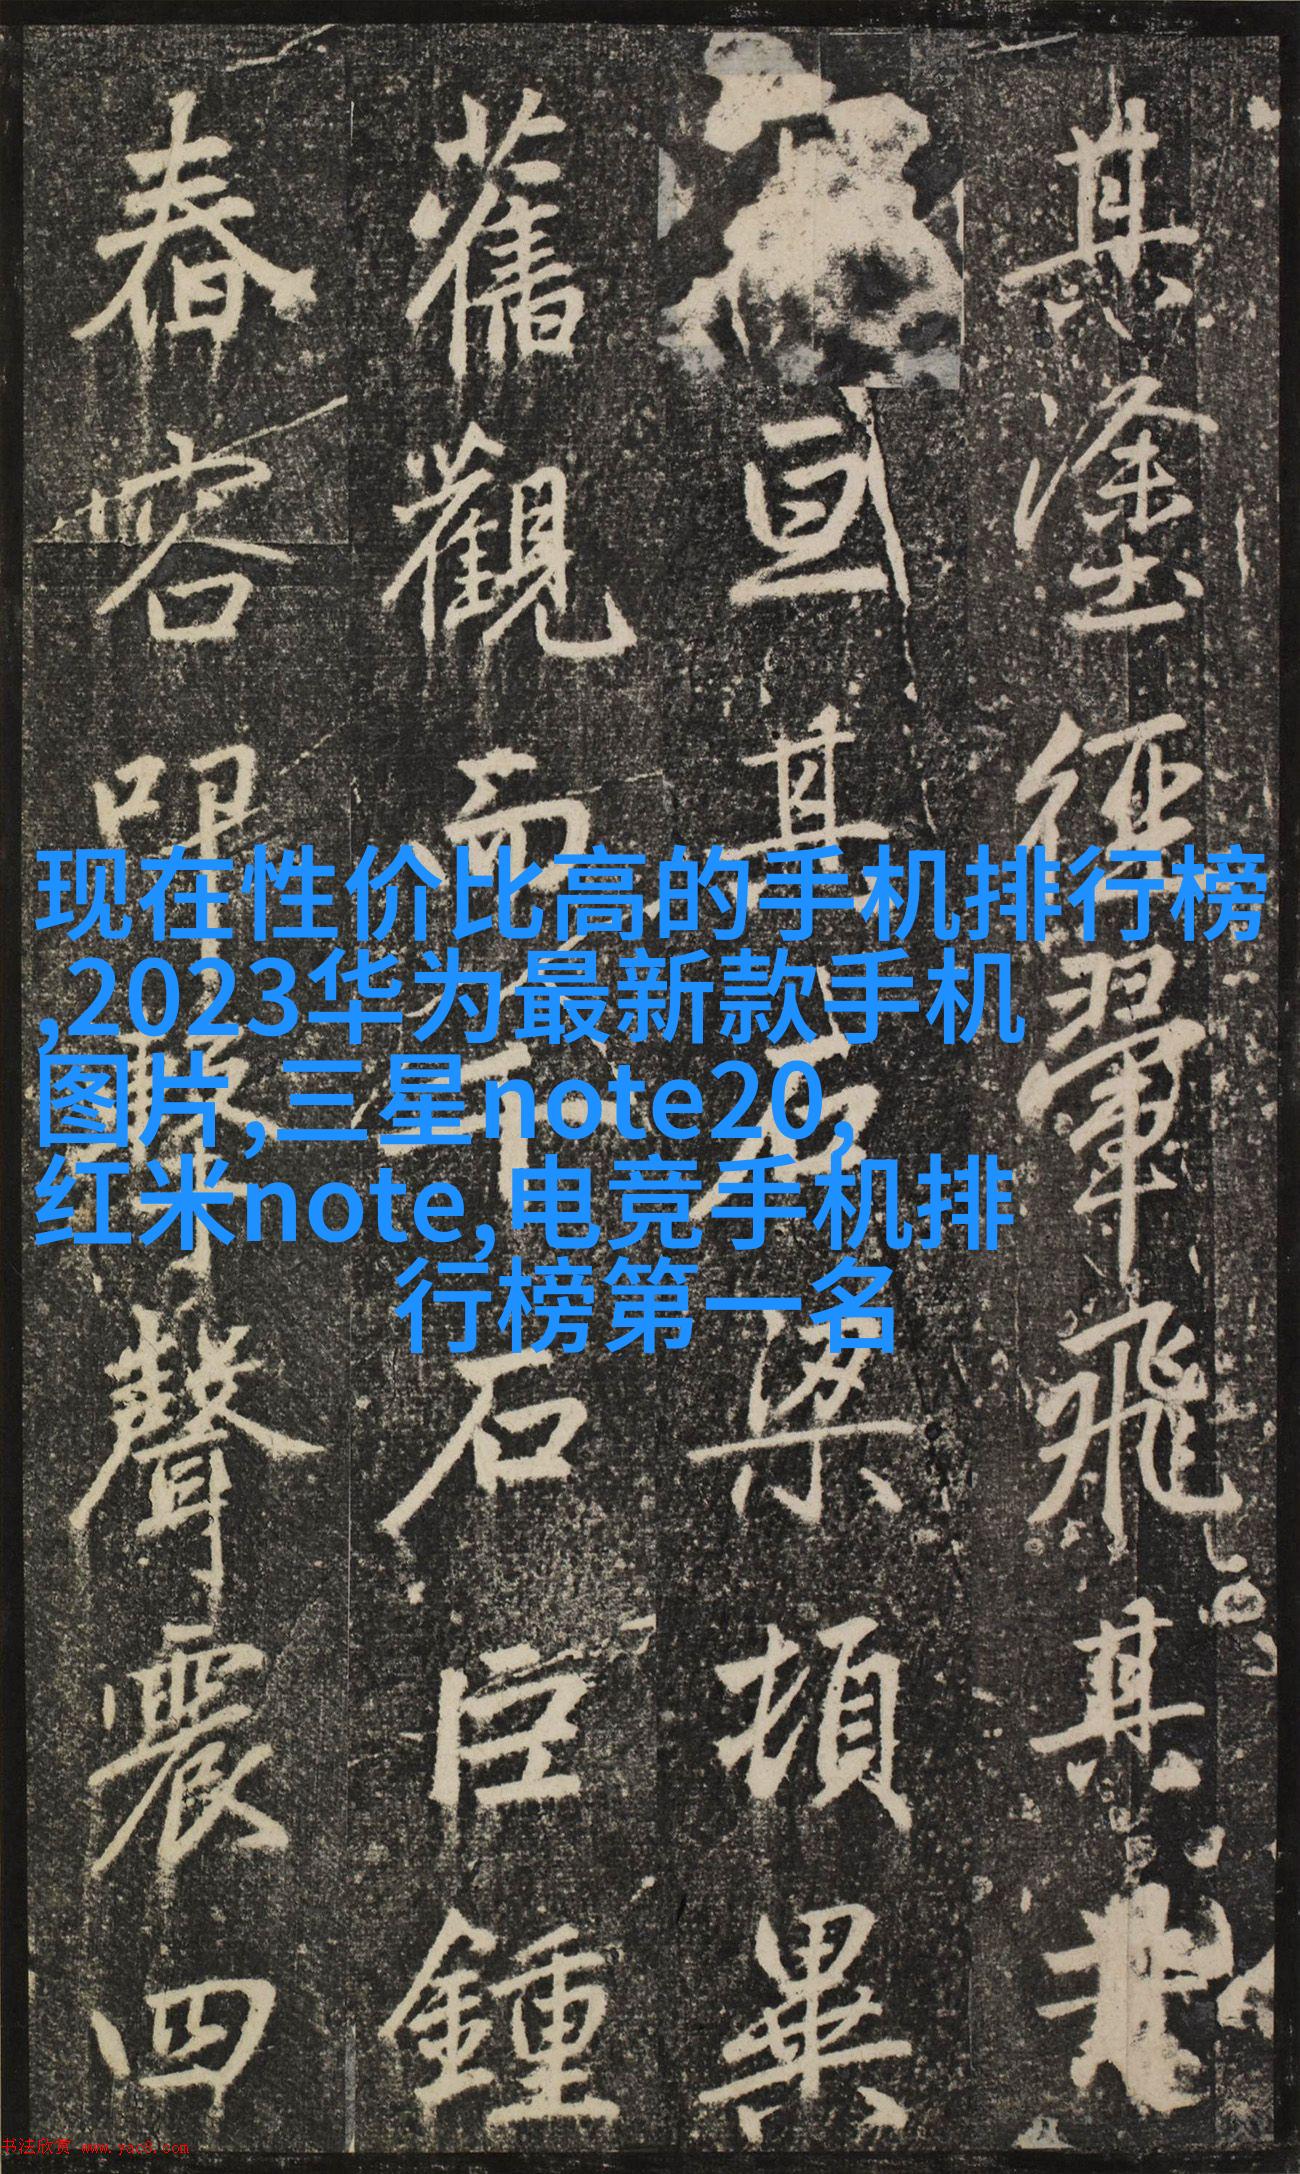 现在性价比高的手机排行榜
,2023华为最新款手机
图片,三星note20,
红米note,电竞手机排
行榜第一名
其塗經翬飛其
亘其石梁頓異
舊觀而石巨鍾
舂容叩擊聲震四
书法欣赏 www.yac8.com